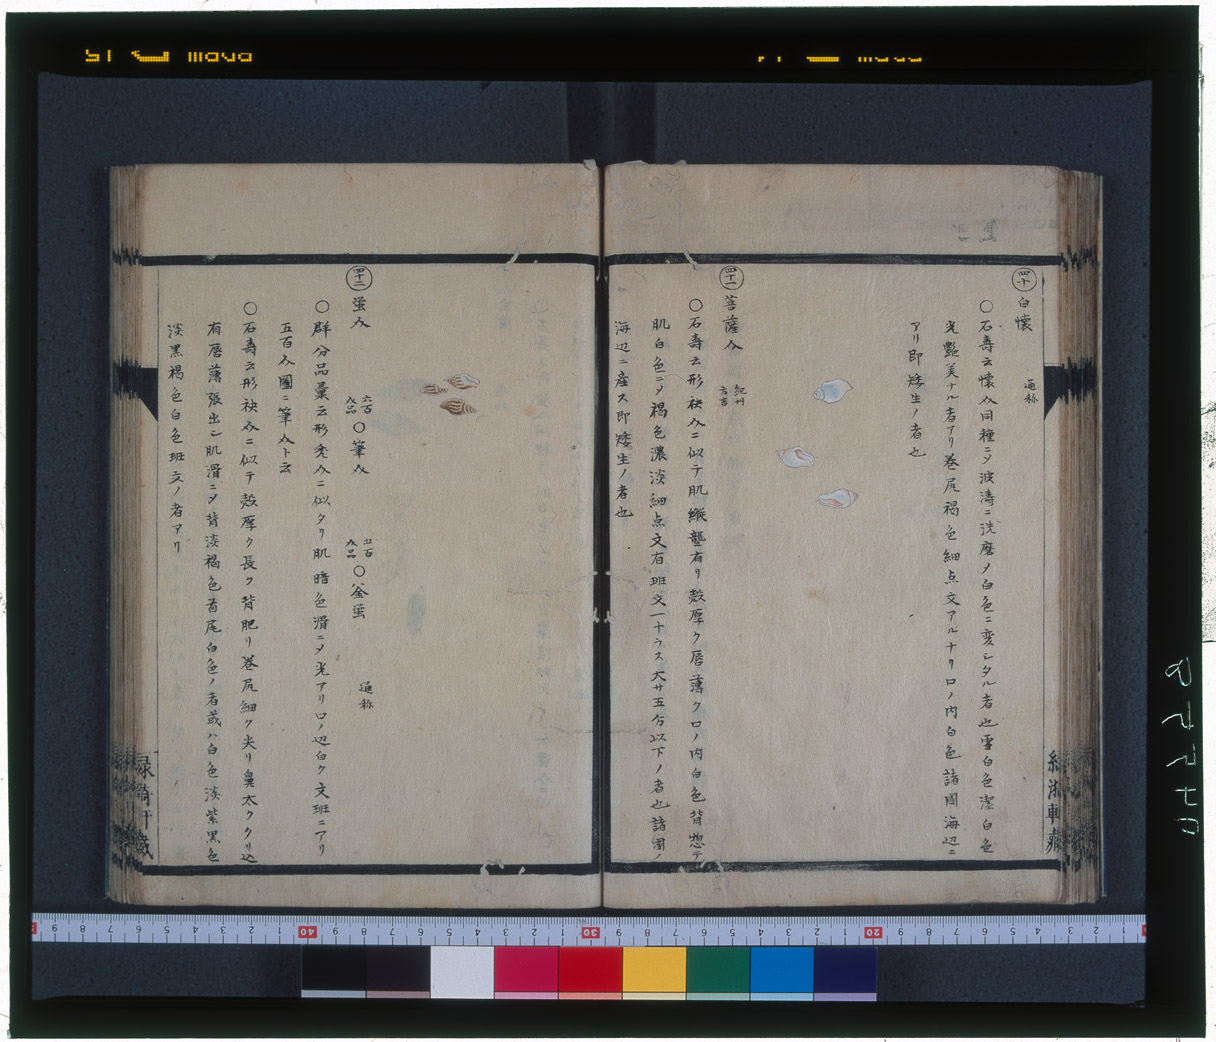 四十 白懐 通称
○石壽云懐介同種ニメ波濤ニ洗磨メ白色ニ変シタル者也雪白色潔白色
光艶美ナル者アリ巻尻褐色細点文アルナリ口ノ内白色諸国海辺ニ
アリ即矮生ノ者也
四十一 菩薩介 紀州方言
○石壽云形袂介ニ似テ肌縦壟有リ殻厚ク唇薄ク口ノ内白色背惣テ
肌白色ニメ褐色濃淡細点文有班文一十ラス大サ五分以下ノ者也諸国ノ
海辺ニ産ス即矮生ノ者也
四十二 蛍介 六百介品 ○筆介 五百介品 ○釜蛍 通称
○群分品彙云形禿介ニ似タリ肌暗色滑ニメ光アリ口ノ辺白ク文班ニアリ
五百介圖ニ筆介ト云
○石壽云形袂介ニ似テ殻厚ク長ク背肥リ巻尻細ク尖リ鼻太ククリ込
有唇薄張出シ肌滑ニメ背淡褐色首尾白色ノ者或ハ白色淡紫黒色
淡黒褐色白色班文ノ者アリ